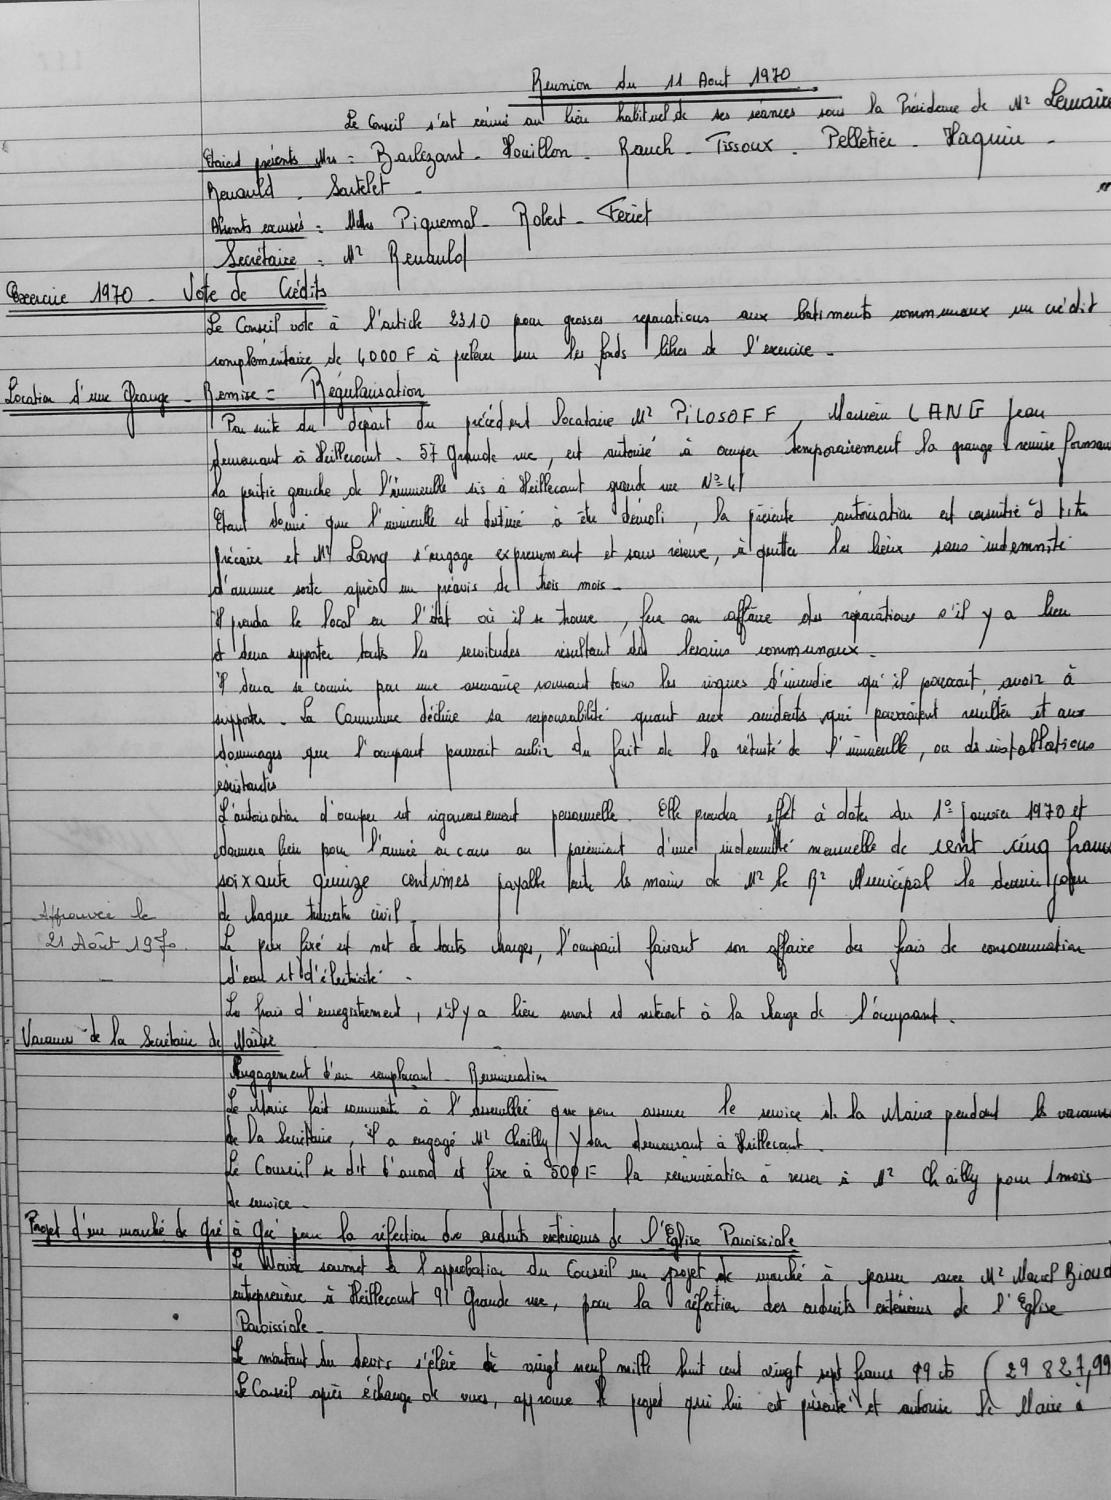 Reunion du 11 Aout 1970
Le Conseil s'est réuni au lieu habituel de ses séances sous la Présidence de Mr Lemaire
Etaient présents Mrs = Barlezant - Houillon - Rauch - Tissoux - Pelletier - Haquin -
Renauld - Sartelet -
Absents excusés = Mrs Piquemal - Robert - Feriet
Secrétaire = Mr Renauld
Exercice 1970 - Vote de Crédits
Le Conseil vote à l'article 2310 pour grosses reparations aux batiments communaux un crédit
complémentaire de 4000 F à prelever sur les fonds libres de l'exercice -
Location d'une Grange - Remise = Régularisation
Par suite du départ du précédent locataire Mr PiLOSOFF, Monsieur LANG Jean
demeurant à Heillecourt - 57 Grande rue, est autorisé à occuper temporairement la grange remise formant
la partie gauche de l'immeuble sis à Heillecourt grande rue N° 41
Etant donné que l'immeuble est destiné à être démoli, la présente autorisation est consentie à titre
précaire et Mr Lang s'engage expressement et sans réserve, à quitter les lieux sans indemnité
d'aucune sorte après un préavis de trois mois -
Il prendra le local en l'état où il se trouve, fera son affaire des réparations s'il y a lieu
et devra supporter touts les servitudes résultant des besoins communaux -
Il devra se couvrir par une assurance couvrant tous les risques d'incendie qu'il pourrait, avoir à
supporter - La Commune décline sa responsabilité quant aux accidents qui pourraient resulter et aux
dommages que l'occupant pourrait subir du fait de la vétusté de l'immeuble, ou des installations
existantes
L'autorisation d'occuper est rigoureusement personnelle. Elle prendra effet à dater du 1° Janvier 1970 et
donnera lieu pour l'année en cours au paiement d'une indemnité mensuelle de cent cinq francs
soixante quinze centimes payable entre les mains de Mr le Rr Municipal le dernier jour
de chaque trimestre civil.
Approuvée le
21 Août 1970
Le prix fixé est net de touts charges, l'occupant faisant son affaire des frais de consommation
d'eau et d'électricité -
Les frais d'enregistrement, s'il y a lieu seront et resteront à la charge de l'occupant.
Vacance de la Secrétaire de Mairie
Engagement d'un remplaçant - Remuneration
Le Maire fait connaitre à l'assemblée que pour assurer le service de la Mairie pendant les vacances
de la Secrétaire, il a engagé Mr Chailly Yvan demeurant à Heillecourt.
Le Conseil se dit d'accord et fixe à 500 F la rémunération à verser à Mr Chailly pour 1 mois
de service -
Projet d'un marché de Gré à Gré pour la réfection des enduits extérieurs de l'Eglise Paroissiale
Le Maire soumet à l'approbation du Conseil un projet de marché à passer avec Mr Marcel
entrepreneur à Heillecourt 91 Grande rue, pour la réfection des enduits extérieurs de l'Eglise
Paroissiale -
Le montant du devis s'élève à vingt neuf mille huit cent vingt sept francs 99 cts (29 827,99
Le Conseil après échange de vues, approuve le projet qui lui est présenté et autorise le Maire à